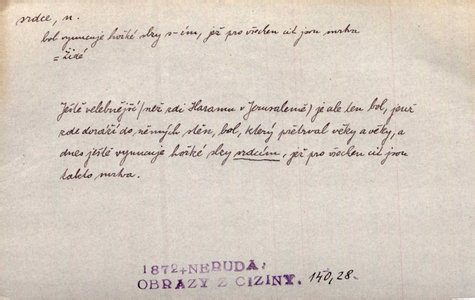 srdce, n.
bol vynucuje hořké slzy s-ím, jež pro všechen cit jsou mrtva
= Židé
Ještě velebnější (než zdi Haramu v Jerusalemě) je ale ten bol, jenž
zde doráží do němých stěn, bol, který přetrval věky a věky, a
dnes ještě vynucuje hořké slzy srdcím, jež pro všechen cit jsou
takto mrtva.
1872 NERUDA,
OBRAZY Z CIZINY. 140, 28-